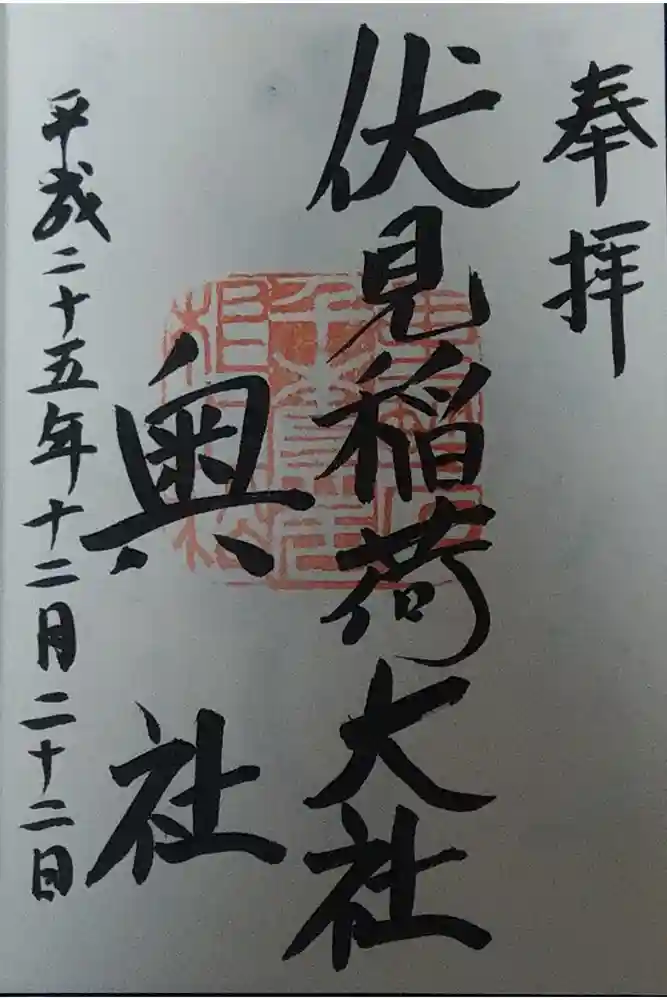 奉拝
伏見稲荷大社
奥社
平成二十五年十二月二十二日